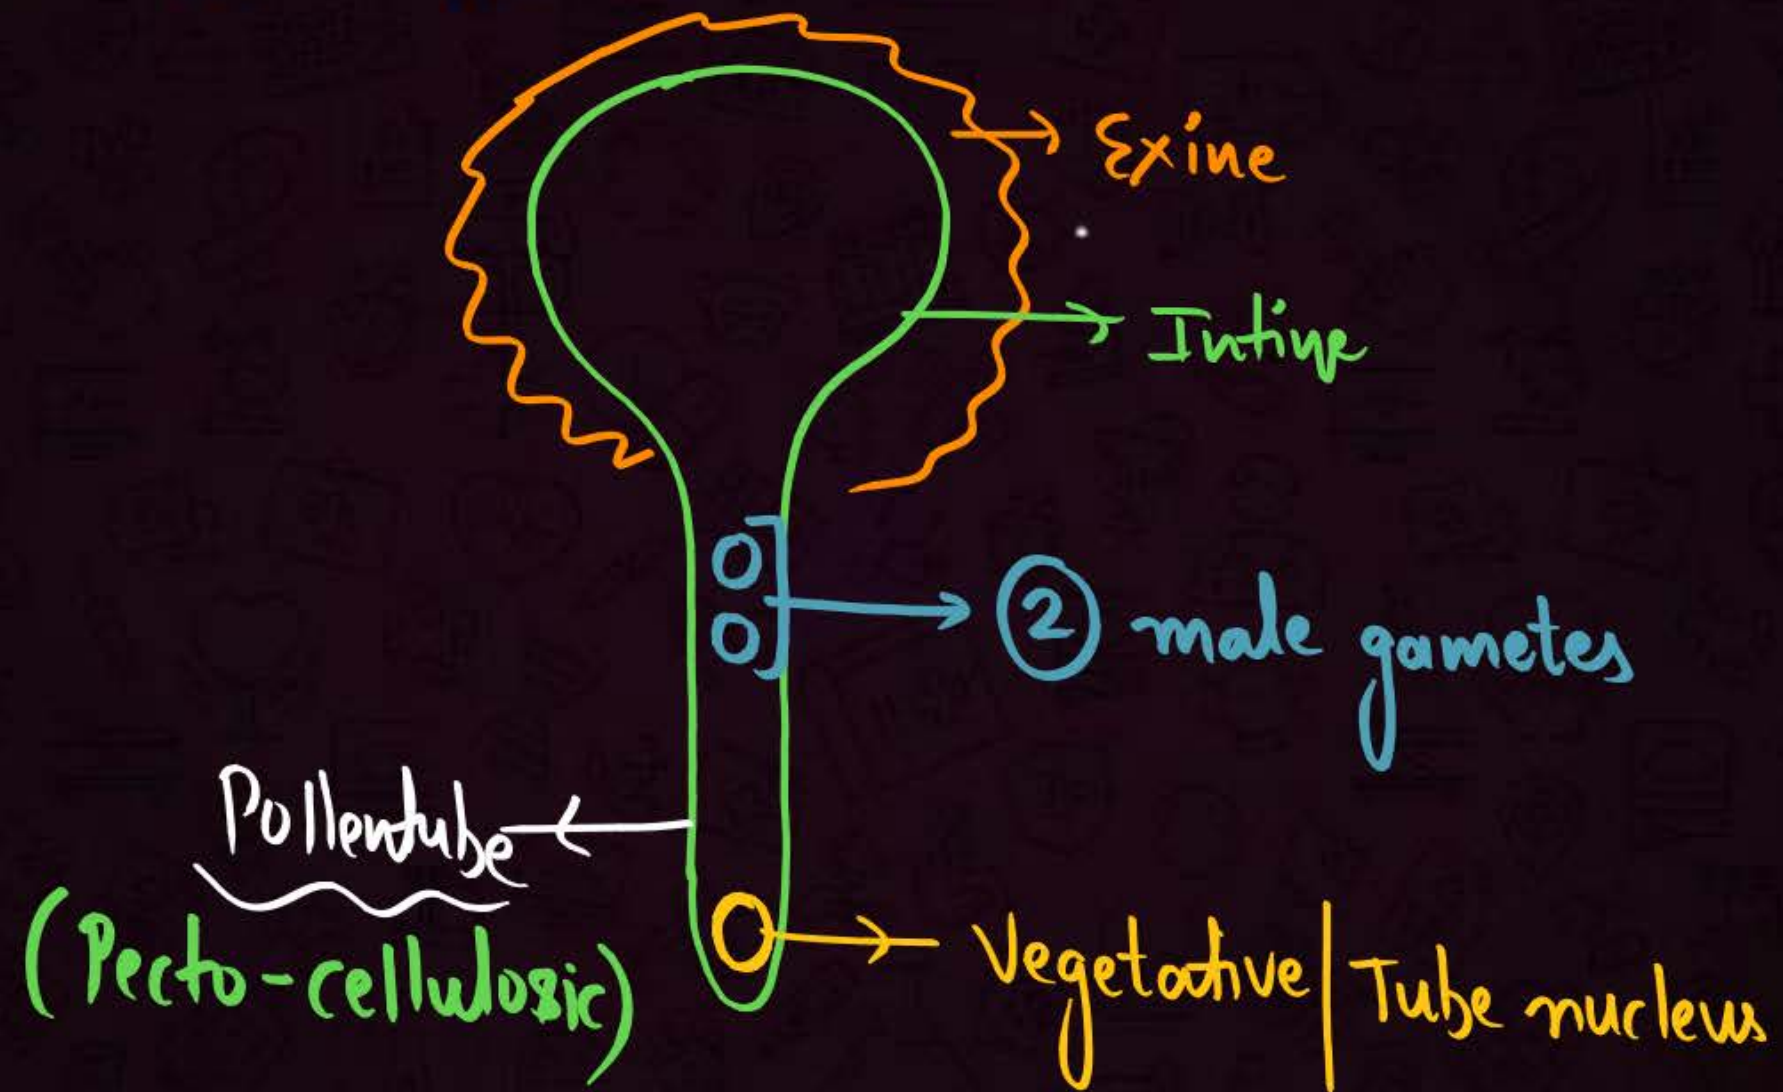 Exine
Intine
② male gametes
Pollentube
(Pecto-cellulosic)
Vegetative | Tube nucleus